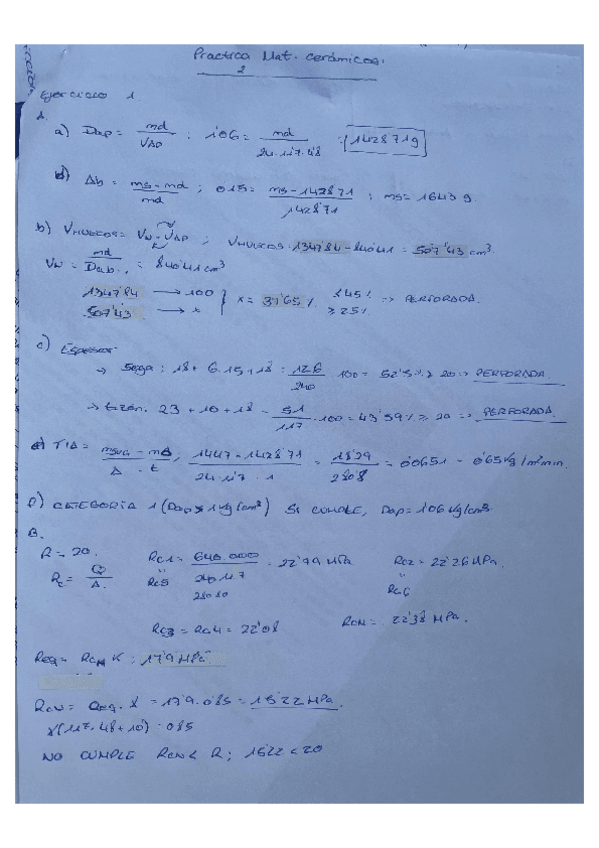 Practica Mat. cerámicos.
2
Ejercicio 1
A.
a) Dap = md / VAP ; 1'06 = md / 24·11'7·4'8 = 1428'71g
d) Ab = ms - md / md ; 0'15 = ms - 1428'71 / 1428'71 ; ms = 1643 g.
b) VHUECOS = VN - VAP ; VHUECOS = 1347'84 - 840'41 = 507'43 cm³
VN = md / Dab. = 840'41 cm³
1347'84 → 100
507'43 → x
x = 37'65 % ≤45% ≥25% => PERFORADA.
c) Espesor
→ Soga : 18 + 6·15 + 18 = 126 / 240 · 100 = 52'5 % ≥ 20 => PERFORADA.
→ tizón. 23 + 10 + 18 = 51 / 117 · 100 = 43'59 % ≥ 20 => PERFORADA.
e) TIA = - md / A · t ; 1447 - 1428'71 / 24·11'7·1 = 18'29 / 280'8 = 0'0651 - 0'65 Kg/m² min.
f) CATEGORÍA 1 (Dap 1 Kg/cm³) SI CUMPLE, Dap = 1'06 Kg/cm³
B.
R = 20.
Rc = Q / A.
RC1 = 640.000 / 240·117 = 22'79 MPa
RC5
28080
RC2 = 22'26 MPa.
RC6
RC3 = RC4 = 22'08
RCM = 22'38 MPa.
Req = RCM K : 17'9 MPa
RCN = Req. δ = 17'9·0'85 = 15'22 MPa.
δ(117·48+10) = 0'85
NO CUMPLE RCN < R ; 15'22 < 20